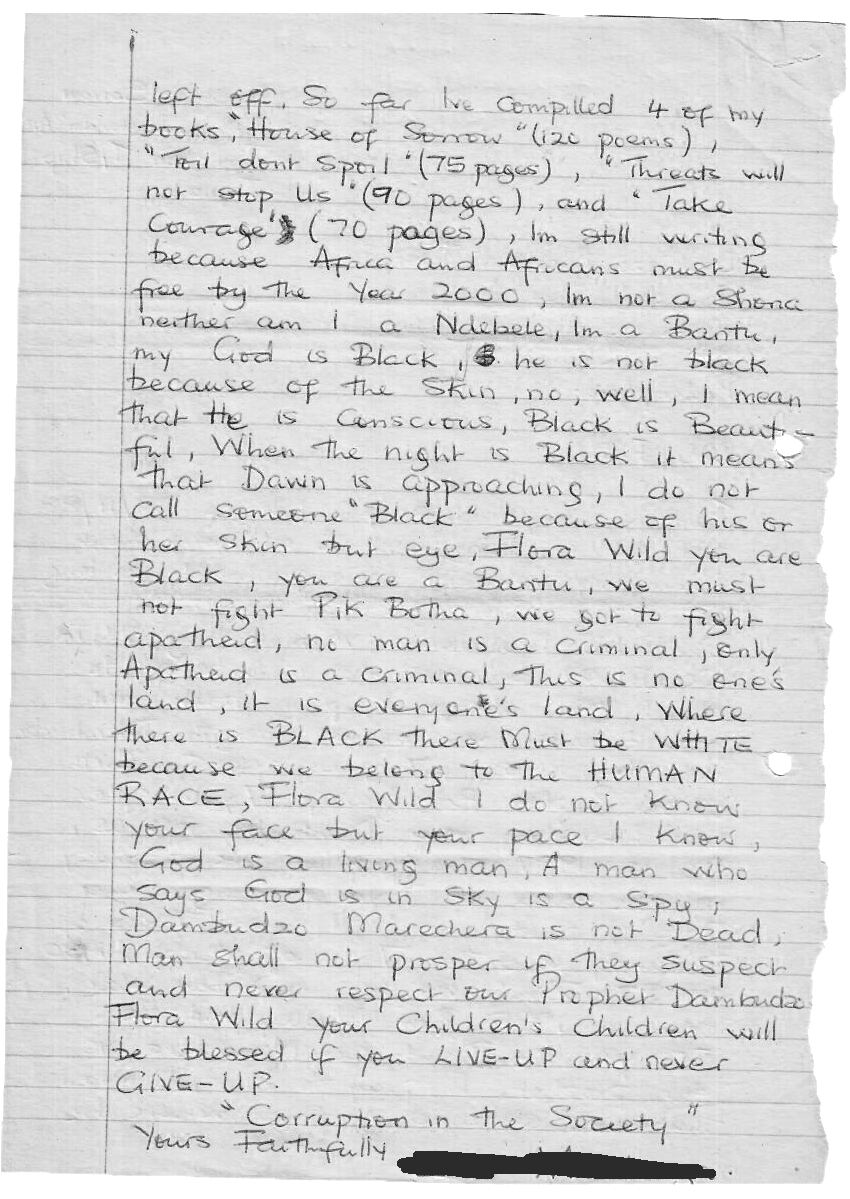 left off. So far Ive Compilled 4 of my
books, "House of Sorrow" (120 poems),
"Toil dont Spoil" (75 pages), "Threats will
not stop Us" (90 pages), and "Take
Courage" (70 pages), Im still writing
because Africa and Africans must be
free by the Year 2000, Im not a Shona
neither am I a Ndebele, Im a Bantu,
my God is Black, he is not black
because of the Skin, no, well, I mean
that He is Conscious, Black is Beauti-
ful, When the night is Black it means
that Dawn is approaching, I do not
Call someone "Black" because of his or
her Skin but eye, Flora Wild you are
Black, you are a Bantu, we must
not fight Pik Botha, we got to fight
apatheid, no man is a Criminal, only
Apatheid is a Criminal, This is no one's
land, it is everyone's land, Where
there is BLACK there Must be WHITE
because we belong to the HUMAN
RACE, Flora Wild I do not know
your face but your pace I know,
God is a living man, A man who
says God is in Sky is a Spy,
Dambudzo Marechera is not Dead,
Man shall not prosper if they suspect
and never respect our Prophet Dambudzo
Flora Wild your Children's Children will
be blessed if you LIVE-UP and never
GIVE-UP.
"Corruption in the Society"
Yours Faithfully